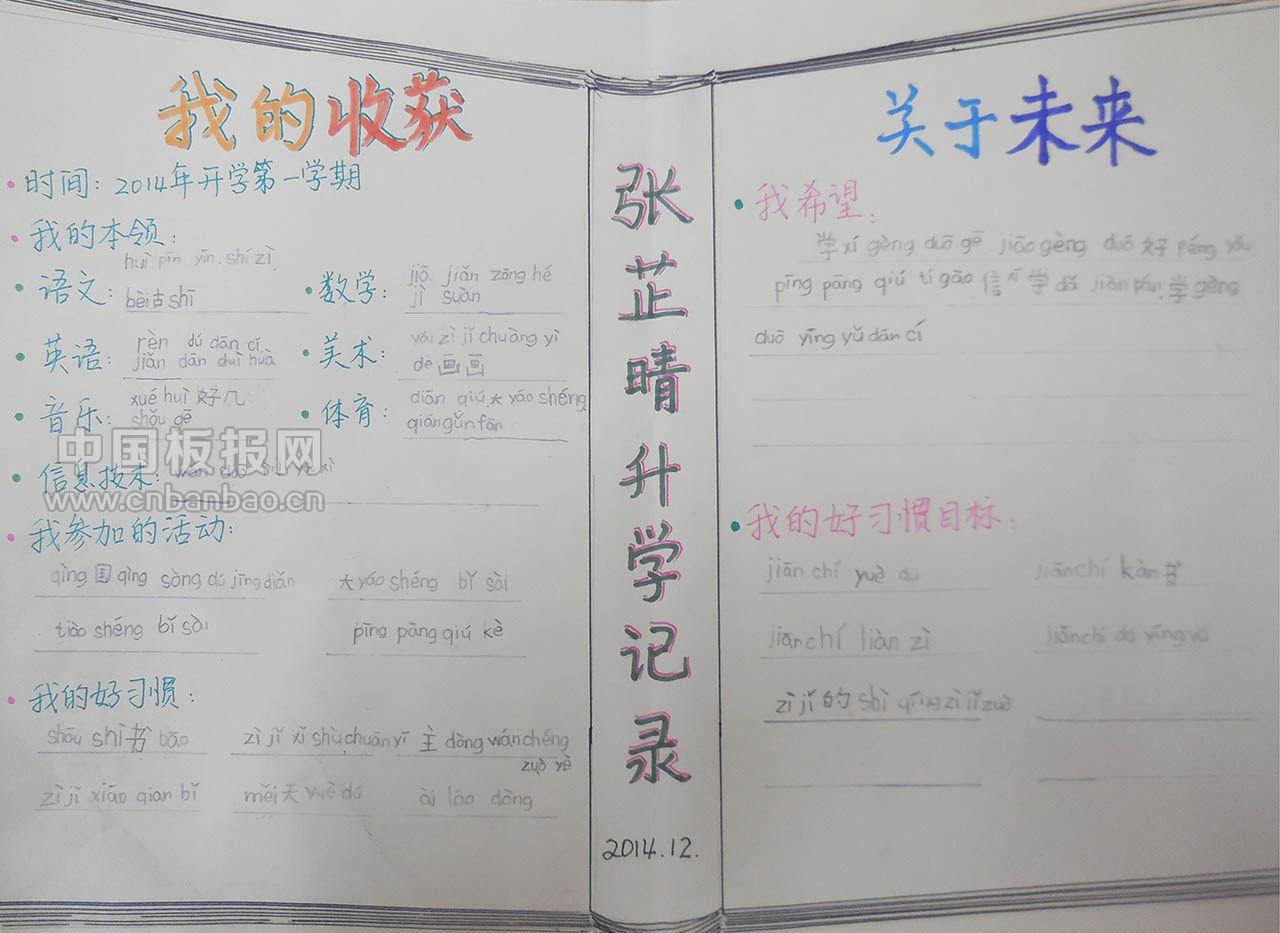 我的收获
时间：2014年开学第一学期
我的本领：
语文：huì pīn yīn.shí zì
bèi古shī
数学：jiā jiǎn zōng hé
jì suàn
英语：rèn dú dān cí
jiǎn dān duì huà
美术：yòu zì jǐ chuàng yì
de画画
音乐：xué huì好几
shǒu gē
体育：diān qiú大yáo shéng
qiángǔnfān
信息技术：
我参加的活动：
qìng国qìng sòng dú jīngdiǎn
大yáo shéng bǐ sài
tiào shéng bǐ sài
pīng pāng qiú kè
我的好习惯：
shōu shì书bāo
zì jǐ xǐ shù chuān yī
主dòng wánchéng
zuò yè
zì jǐ xiāo qian bǐ
měi天yuè dú
ài láo dòng
张芷晴升学记录
2014.12.
关于未来
我希望：
学xí gèng duō gē jiāo gèng duō好péng yǒu
pīng pāng qiú tí gāo 学dǎ jiàn pán.学gèng
duō yīng yǔ dān cí
我的好习惯目标：
jiān chí yuè dú
jiān chí kàn书
jiān chí liàn zì
jiān chí dú yīng yǔ
zì jǐ的shì qíng zì jǐ zuò
中国板报网
www.cnbanbao.cn